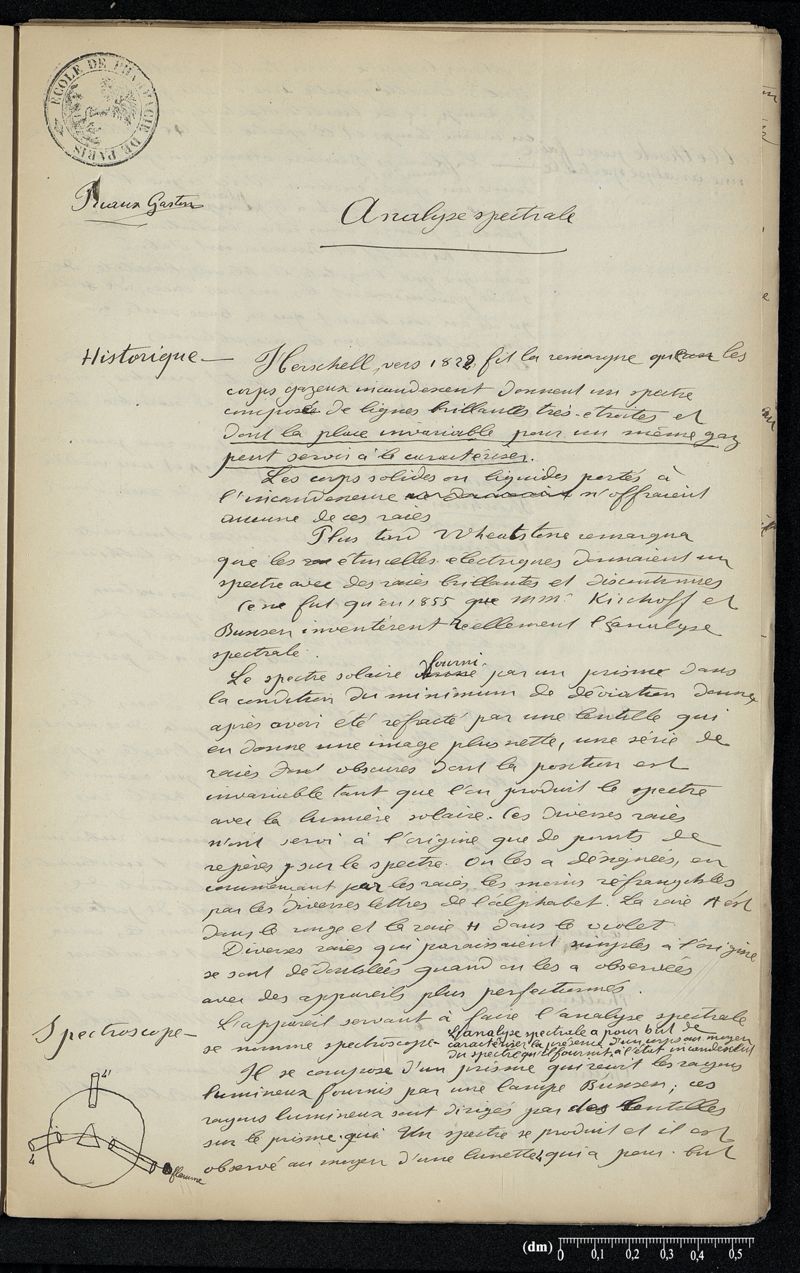 ECOLE DE PHARMACIE DE PARIS
Gaston
Analyse spectrale
Historique — Herschell, vers 1822 fit la remarque que les
corps gazeux incandescent donnent un spectre
composé de lignes brillantes très-étroites et
dont la place invariable pour un même gaz
peut servir à le caractériser.
Les corps solides ou liquides portés à
l'incandescence n'offraient
aucune de ces raies
Plus tard Wheatstone remarqua
que les étincelles electriques donnaient un
spectre avec des raies brillantes et discontinues
Ce ne fut qu'en 1855 que MM. Kirchoff et
Bunsen inventèrent réellement l'analyse
spectrale.
Le spectre solaire fourni par un prisme dans
la condition du minimum de déviation donne
après avoir été réfracté par une lentille qui
en donne une image plus nette, une série de
raies obscures dont la position est
invariable tant que l'on produit le spectre
avec la lumière solaire. Ces diverses raies
n'ont servi à l'origine que de points de
repères sur le spectre. On les a désignées, en
commençant par les raies les moins réfrangibles
par les diverses lettres de l'alphabet. La raie A est
dans le rouge et la raie H dans le violet
Diverses raies qui paraissaient simples à l'origine
se sont dédoublées quand on les a observées
avec des appareils plus perfectionnés.
Spectroscope — L'appareil servant à faire l'analyse spectrale
se nomme spectroscope - L'analyse spectrale a pour but de
caractériser la présence d'un corps au moyen
du spectre qu'il fournit à l'état incandescent
Il se compose d'un prisme qui reçoit les rayons
lumineux fournis par une lampe Bunsen; ces
rayons lumineux sont dirigés par des lentilles
sur le prisme. qui Un spectre se produit et il est
observé au moyen d'une lunette 4 qui a pour but
4
flamme
(dm) 0 0,1 0,2 0,3 0,4 0,5